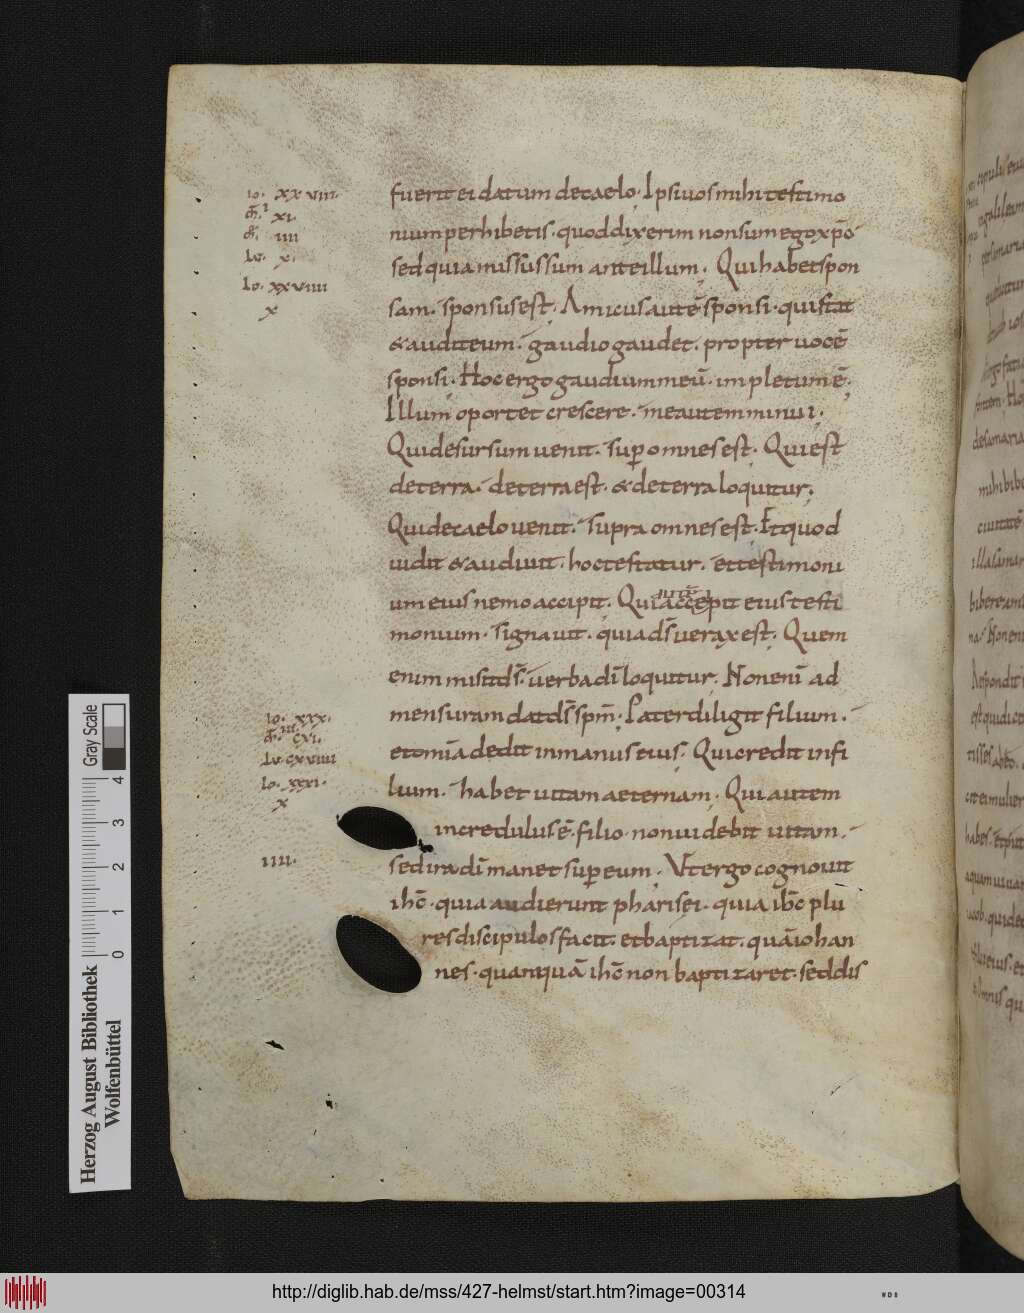 fuerit ei datum decaelo. Ipsi uos mihi testimo
nium perhibetis. quod dixerim non sum ego xp̄s
sed quia missus sum ante illum. Qui habet spon
sam. sponsus est. Amicus autē sponsi. qui stat
& audit eum. gaudio gaudet. propter uocē
sponsi. Hoc ergo gaudium meū. impletum ē.
Illum oportet crescere. me autem minui.
Qui desursum uenit. sup̱ omnes est. Qui est
deterra. deterra est. & deterra loquitur.
Qui decaelo uenit. supra omnes est. Et quod
uidit & audiuit. hoc testatur. et testimoni
um eius nemo accipit. Qui accepit eius testi
monium. signauit. quia d̄s uerax est. Quem
enim misit d̄s. uerba dī loquitur. Non enī ad
mensuram dat d̄s sp̄m. Pater diligit filium.
et omīa dedit in manus eius. Qui credit infi
lium. habet uitam aeternam. Qui autem
incredulus ē. filio. non uidebit uitam.
sed ira dī manet sup̱ eum. Ut ergo cognouit
ih̄c. quia audierunt pharisei. quia ih̄c plu
res discipulos facit. et baptizat. quā iohan
nes. quanquā ih̄c non baptizaret. sed dis
Io. xxviii.
xi.
iiii
Lu. x.
Io. xxviiii
x
Io. xxx.
cxi.
Lu. cxviiii
Io. xxxi.
x
iiii.
Gray Scale
0 1 2 3 4
Herzog August Bibliothek
Wolfenbüttel
http://diglib.hab.de/mss/427-helmst/start.htm?image=00314